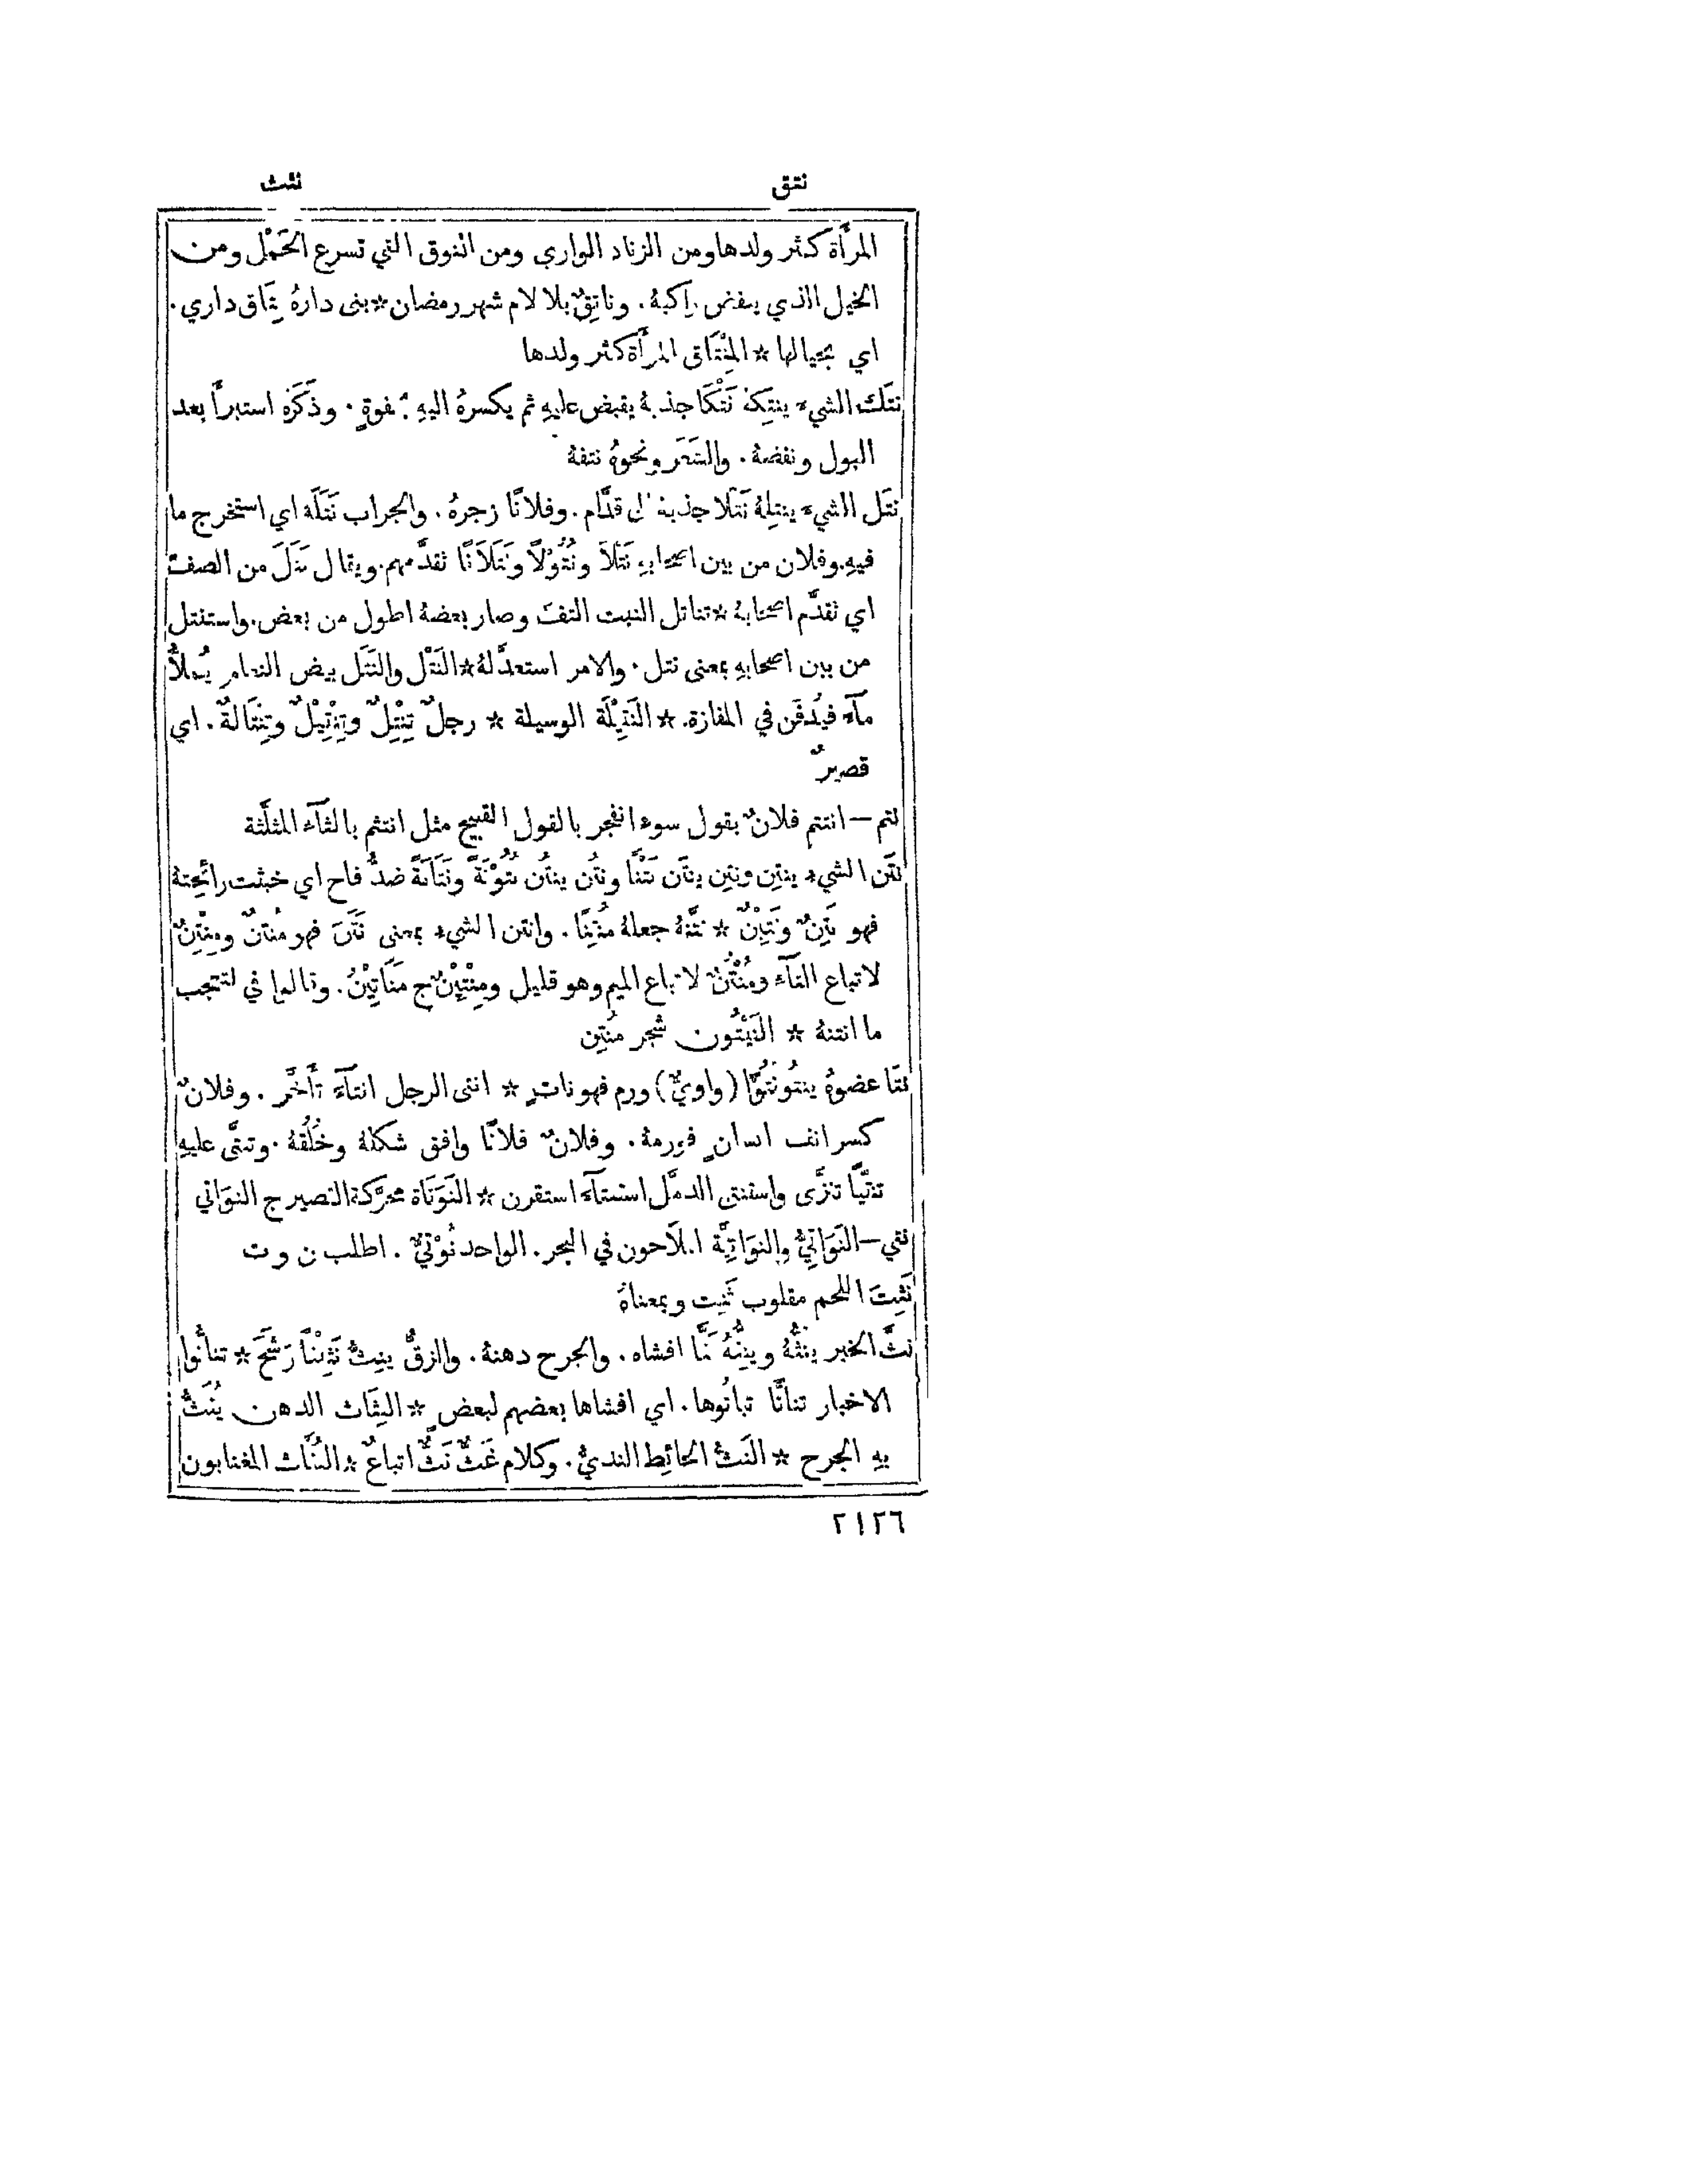 نتق نثث
المرأة كثر ولدها ومن الزناد الواري ومن النوق التي تسرع الحَمْل ومن
الخيل الذي ينفض راكبهُ. وناتِقٌ بلا لام شهر رمضان * بنى دارهُ نِتَاق داري.
اي بحيالها * المِنْتَاق المرأة كثر ولدها
نتَك الشيء ينتِكهُ نَتْكًا جذبهُ يقبض عليهِ ثم يكسرهُ اليهِ بجفوةٍ. وذَكَرَه استبرأ بعد
البول ونفضهُ. والشَعَر ونحوهُ نتفهُ
نتَل الشيء ينتِلهُ نَتْلًا جذبهُ الى قدَّام. وفلانًا زجرهُ. والجراب نَتَلَه اي استخرج ما
فيهِ. وفلان من بين اصحابهِ نَتْلًا ونُتُوْلًا ونَتَلَانًا تقدَّمهم. ويقال نَتَلَ من الصفّ
اي تقدَّم اصحابهُ * تناتل النبت التفَّ وصار بعضهُ اطول من بعض. واستنتل
من بين اصحابهِ بمعنى نتل. والامر استعدَّ لهُ * النَتْل والنَتَل بيض النعام يُملأُ
مآءً فيُدفَن في المفازة. * النَتِيْلَة الوسيلة * رجلٌ تِنْتِلٌ وتِنْتِيْلٌ وتِنْتَالةٌ. اي
قصيرٌ
نتم – انتتم فلانٌ بقول سوء انفجر بالقول القبيح مثل انتثم بالثآء المثلَّثة
نتَن الشيء ينتِن ونتِن ينتَن نَتْنًا ونتُن ينتُن نُتُوْنَةً ونَتَانَةً ضدُّ فاح اي خبثت رائحتهُ
فهو نَتِنٌ ونَتِيْنٌ * نتَّنهُ جعلهُ مُنْتِنًا. وانتن الشيء بمعنى نَتَنَ فهو مُنتِنٌ ومِنْتِنٌ
لاتباع التآء ومُنْتُنٌ لاتباع الميم وهو قليل ومِنْتِيْنٌ ج مَنَاتِيْنُ. وقالوا في التعجب
ما انتنهُ * النَيْتُون شجر مُنتِن
نتَا عضوهُ ينتُو نُتُوًّا (واويٌّ) ورم فهو ناتٍ * انتى الرجل انتآءً تأَخَّر. وفلانٌ
كسر انف انسانٍ فورمهُ. وفلانٌ فلانًا وافق شكلهُ وخُلُقهُ. وتنتَّى عليهِ
تنتّيًا تنزَّى واستنتى الدمَّل استنتآءً استقرن * النَوَتَاة محرَّكة القصير ج النوَاتي
نتي – النَوَاتِيُّ والنوَاتِيَّة الملَّاحون في البحر. الواحد نُوْتيٌّ. اطلب ن و ت
نَثِتَ اللحم مقلوب ثَنِت وبمعناهُ
نثَّ الخبر ينُثُّهُ وينِثُّهُ نَثًّا افشاه. والجرح دهنهُ. والزقُّ ينِثُّ نَثِيْثًا رَشَحَ * تناثُّوا
الاخبار تناثًّا تباثُّوها. اي افشاها بعضهم لبعض * النِثَاث الدهن يُنَثُّ
بهِ الجرح * النَثُّ الحائط النديُّ. وكلام غَثٌّ نَثٌّ اتباعٌ * النُثَّاث المغتابون
٢١٢٦